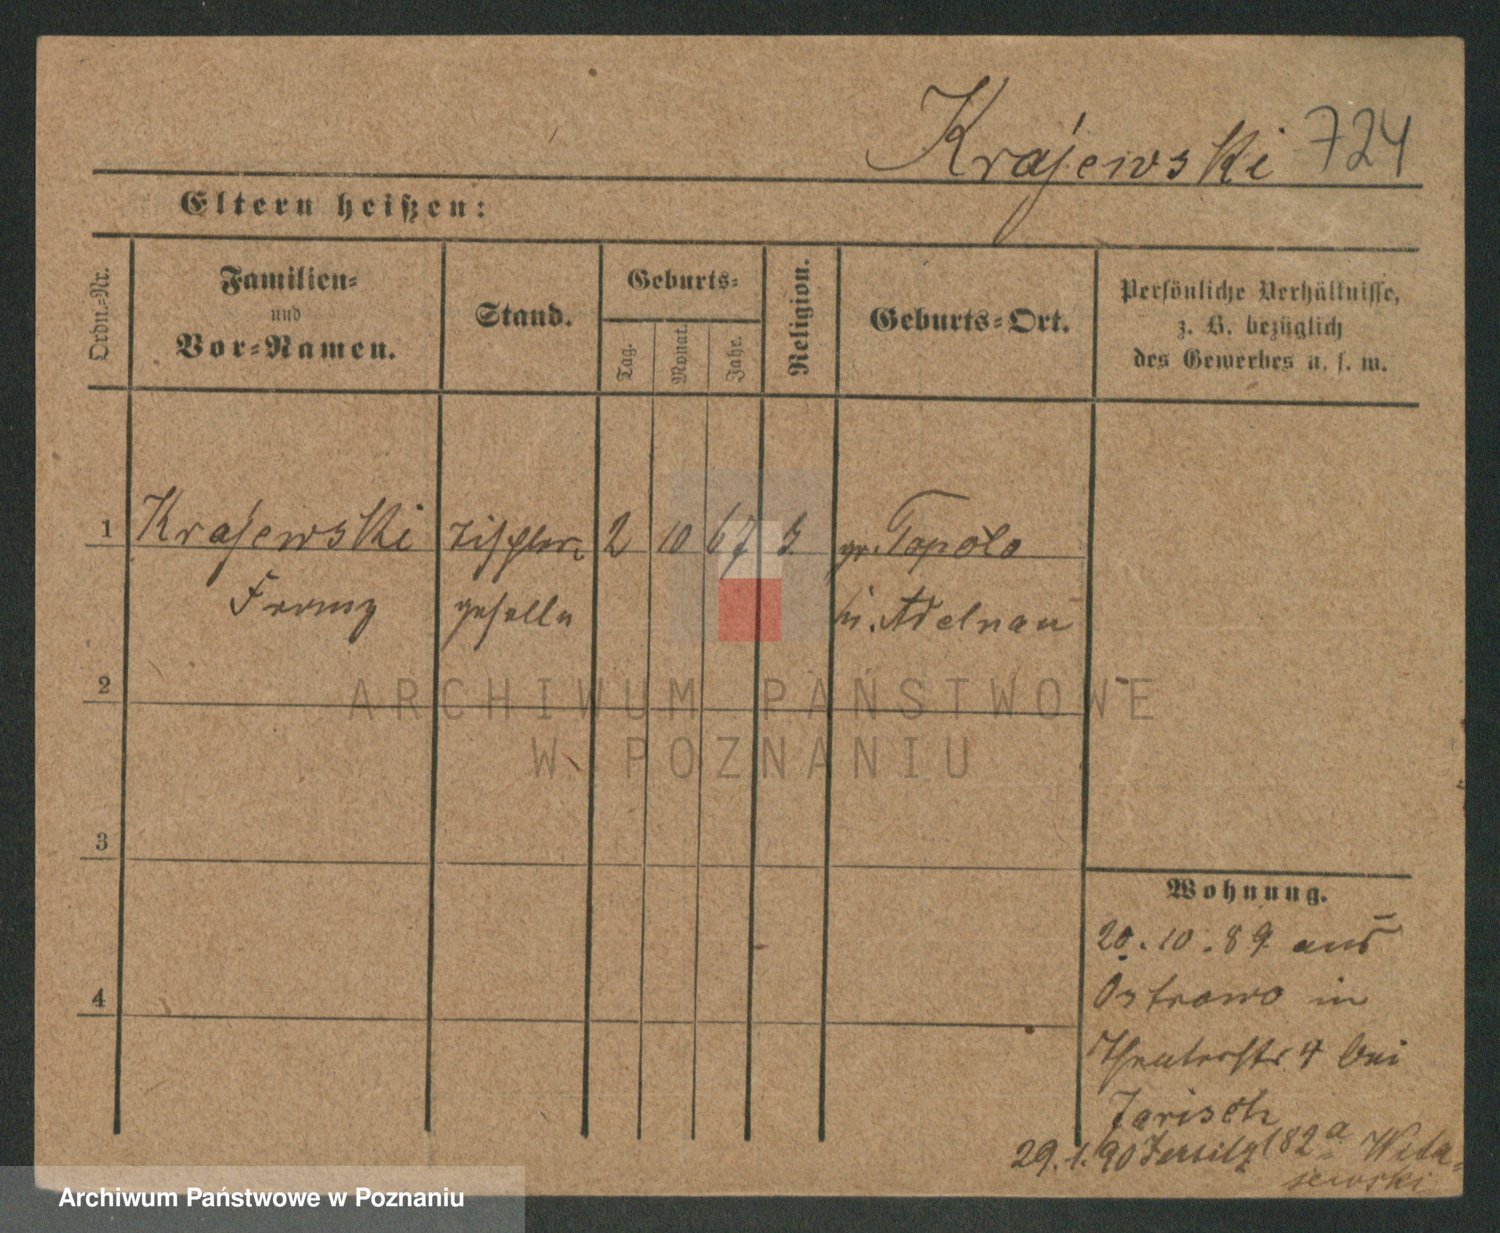 Krajewski 724
Eltern heißen:
Ordn.-Nr.
Familien-
und
Vor-Namen.
Stand.
Geburts-
Tag.
Monat.
Jahr.
Religion.
Geburts-Ort.
Persönliche Verhältnisse,
z. B. bezüglich
des Gewerbes u. s. w.
1 Krajewski Tischler- 2 10 67 gr. Topola
Franz geselle Adelnau
2
3
4
ARCHIWUM PAŃSTWOWE
W POZNANIU
Wohnung.
20.10.89 aus
Ostrowo in
Theaterstr 4 bei
Jarisch
29.1.90 Jersitz 182a Wita-
jewski
Archiwum Państwowe w Poznaniu